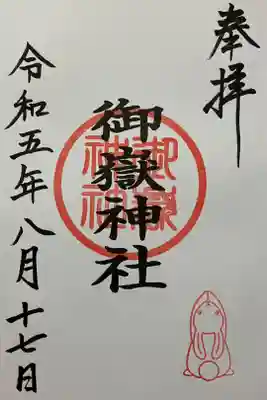 奉拝
御嶽神社
御嶽神社
令和五年八月十七日